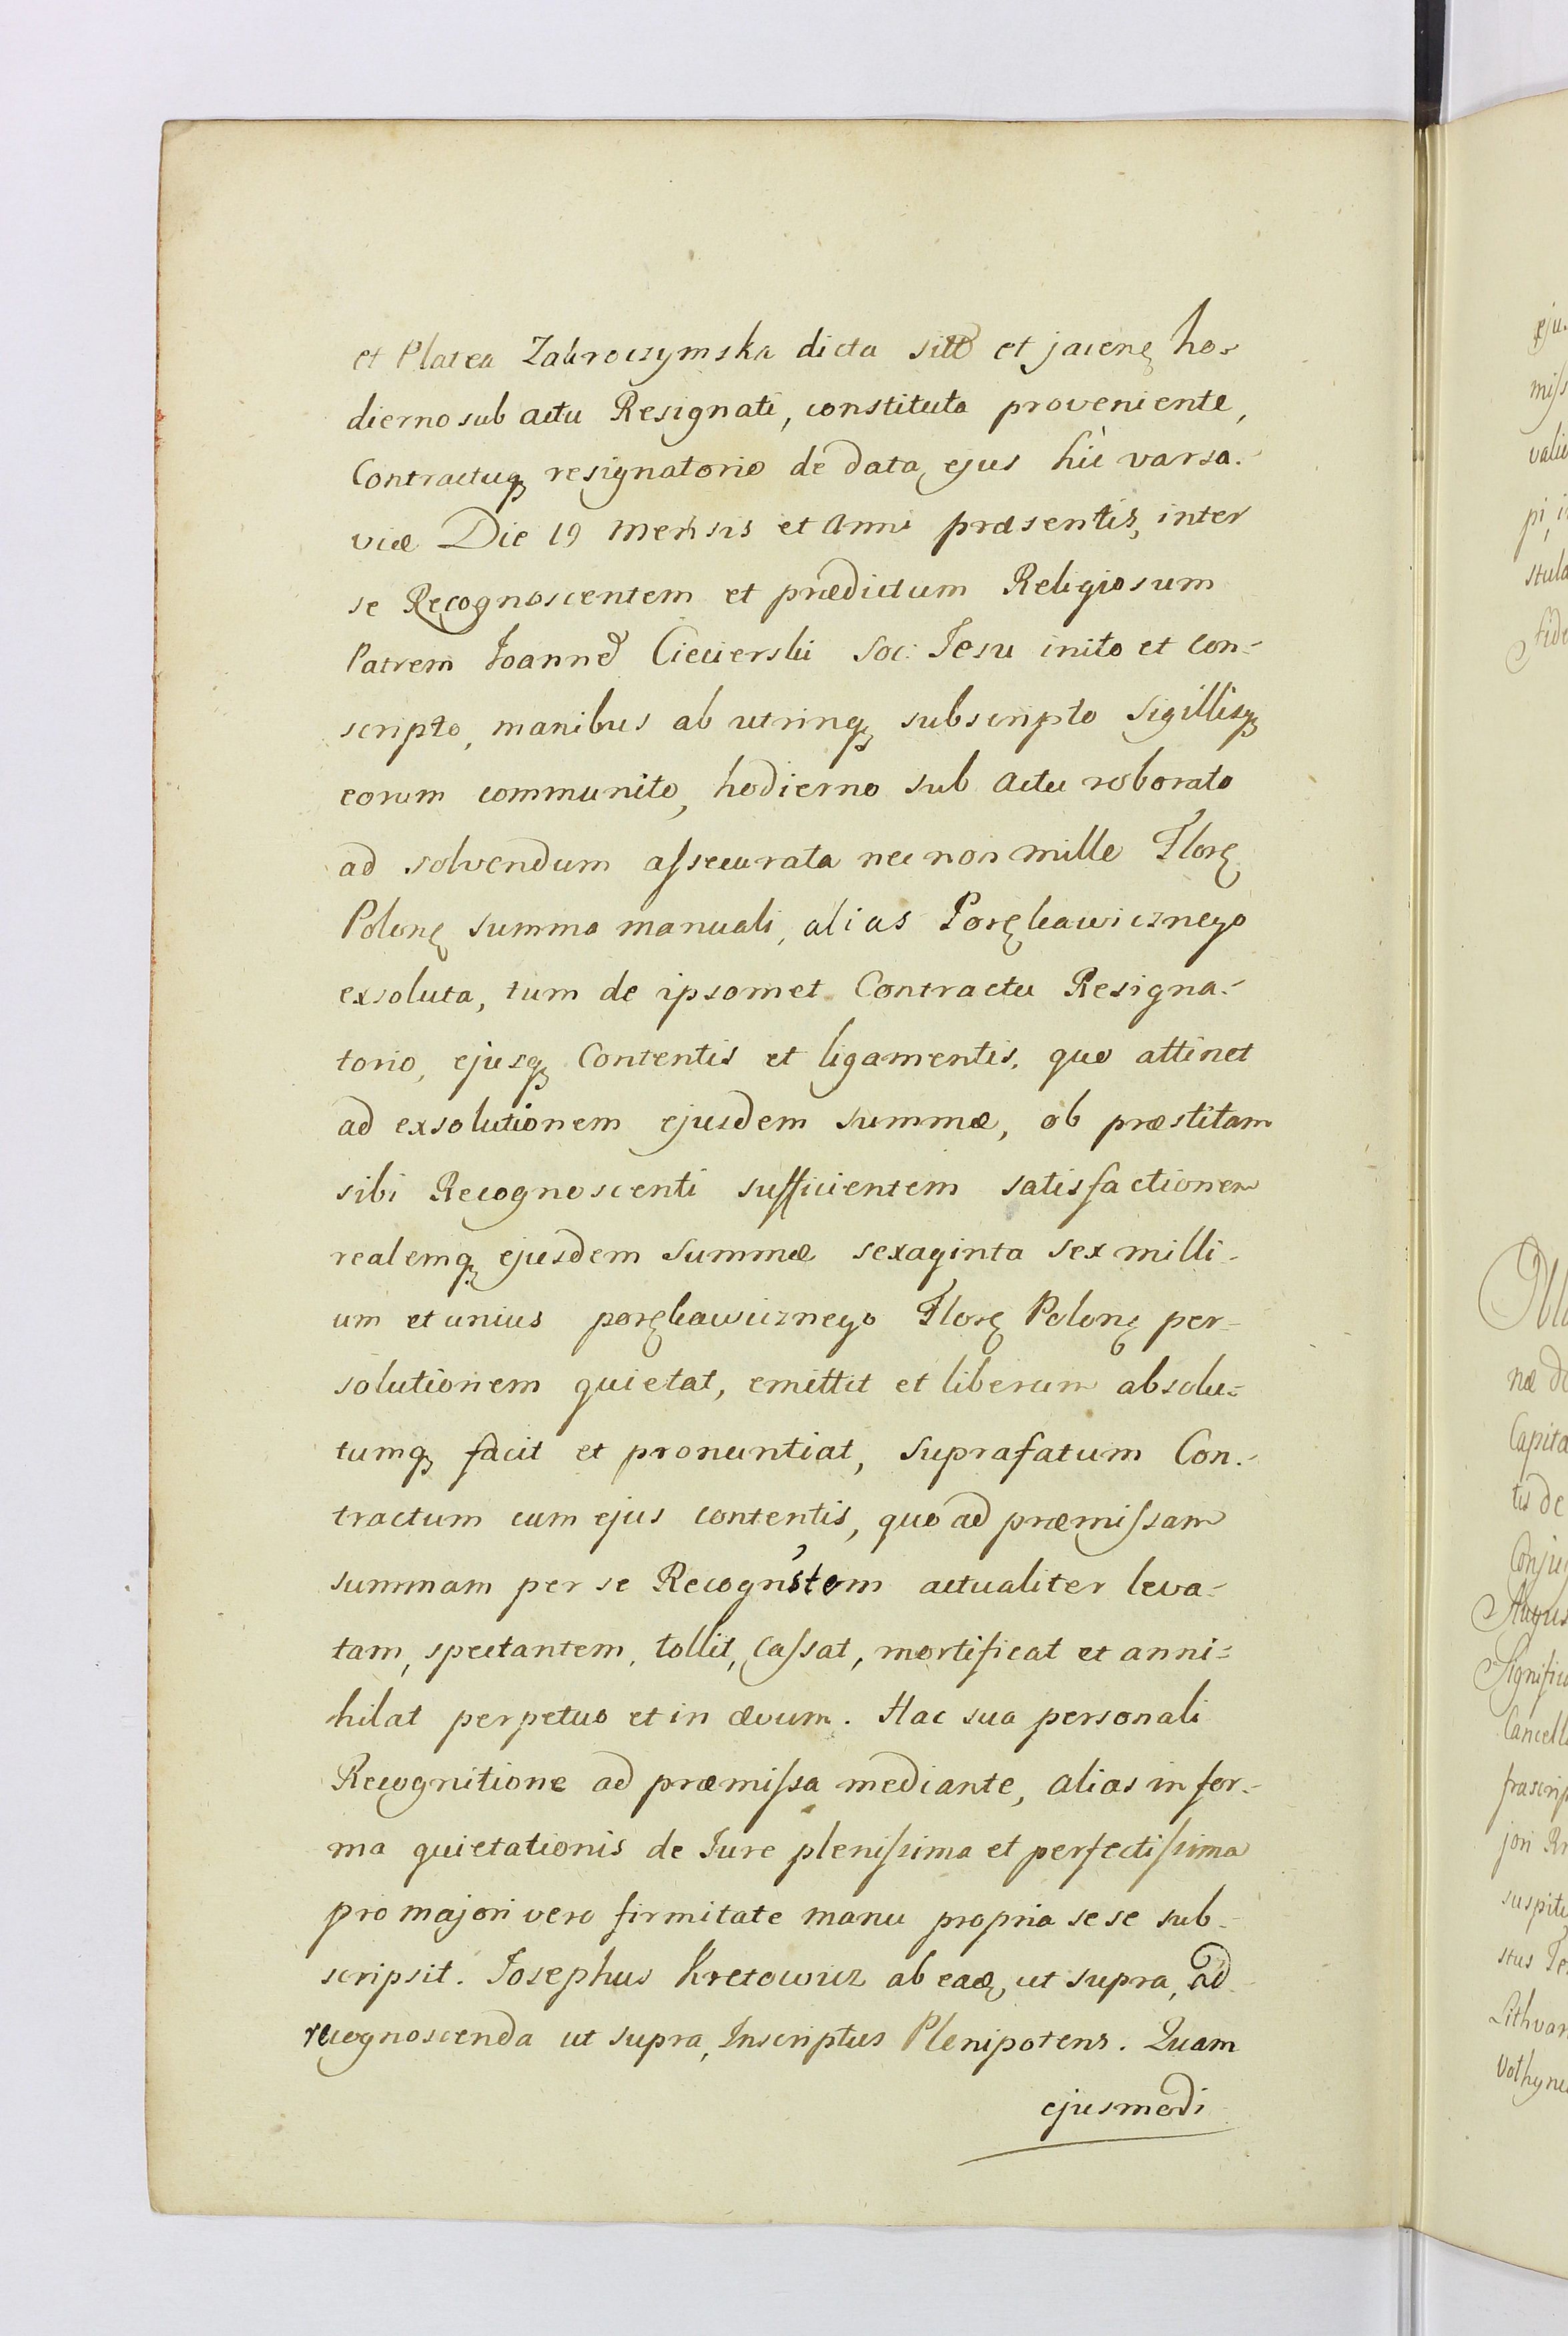 et Platea Zakroczymska dicta sitto et jacenę ho-
dierno sub actu Resignati, constituta proveniente,
Contractuq resignatorio de data ejus hìc varsa-
viæ Die 19 Mensis et Anni præsentis, inter
se Recognoscentem et prædictum Religiosum
Patrem Joannē Ciecierski Soc: Jesu inito et con-
scripto, manibus ab utrinq subscripto Sigillisq
eorum communito, hodierno sub actu roborato
ad solvendum assecurata nec non mille Florę
Polonę summa manuali, alias Porękawicznego
exsoluta, tum de ipsomet Contractu Resigna-
torio, ejusq Contentis et ligamentis, quo attinet
ad exsolutionem ejusdem summæ, ob præstitam
sibi Recognoscenti sufficientem satisfactionem
realemq ejusdem Summæ sexaginta sex milli-
um et unius porękawicznego Florę Polonę per-
solutionem quietat, emittit et liberum absolu-
tumq facit et pronuntiat, suprafatum Con-
tractum cum ejus contentis, quo ad præmissam
summam per se Recognstem actualiter leva-
tam, spectantem, tollit, Cassat, mortificat et anni-
hilat perpetuo et in ævum. Hac sua personali
Recognitione ad præmissa mediante, alias in for-
ma quietationis de Jure plenissima et perfectissima
pro majori vero firmitate manu propria sese sub-
scripsit. Josephus Kretowicz ab eadę, ut supra, ad
recognoscenda ut supra, Inscriptus Plenipotens. Quam
ejusmodi